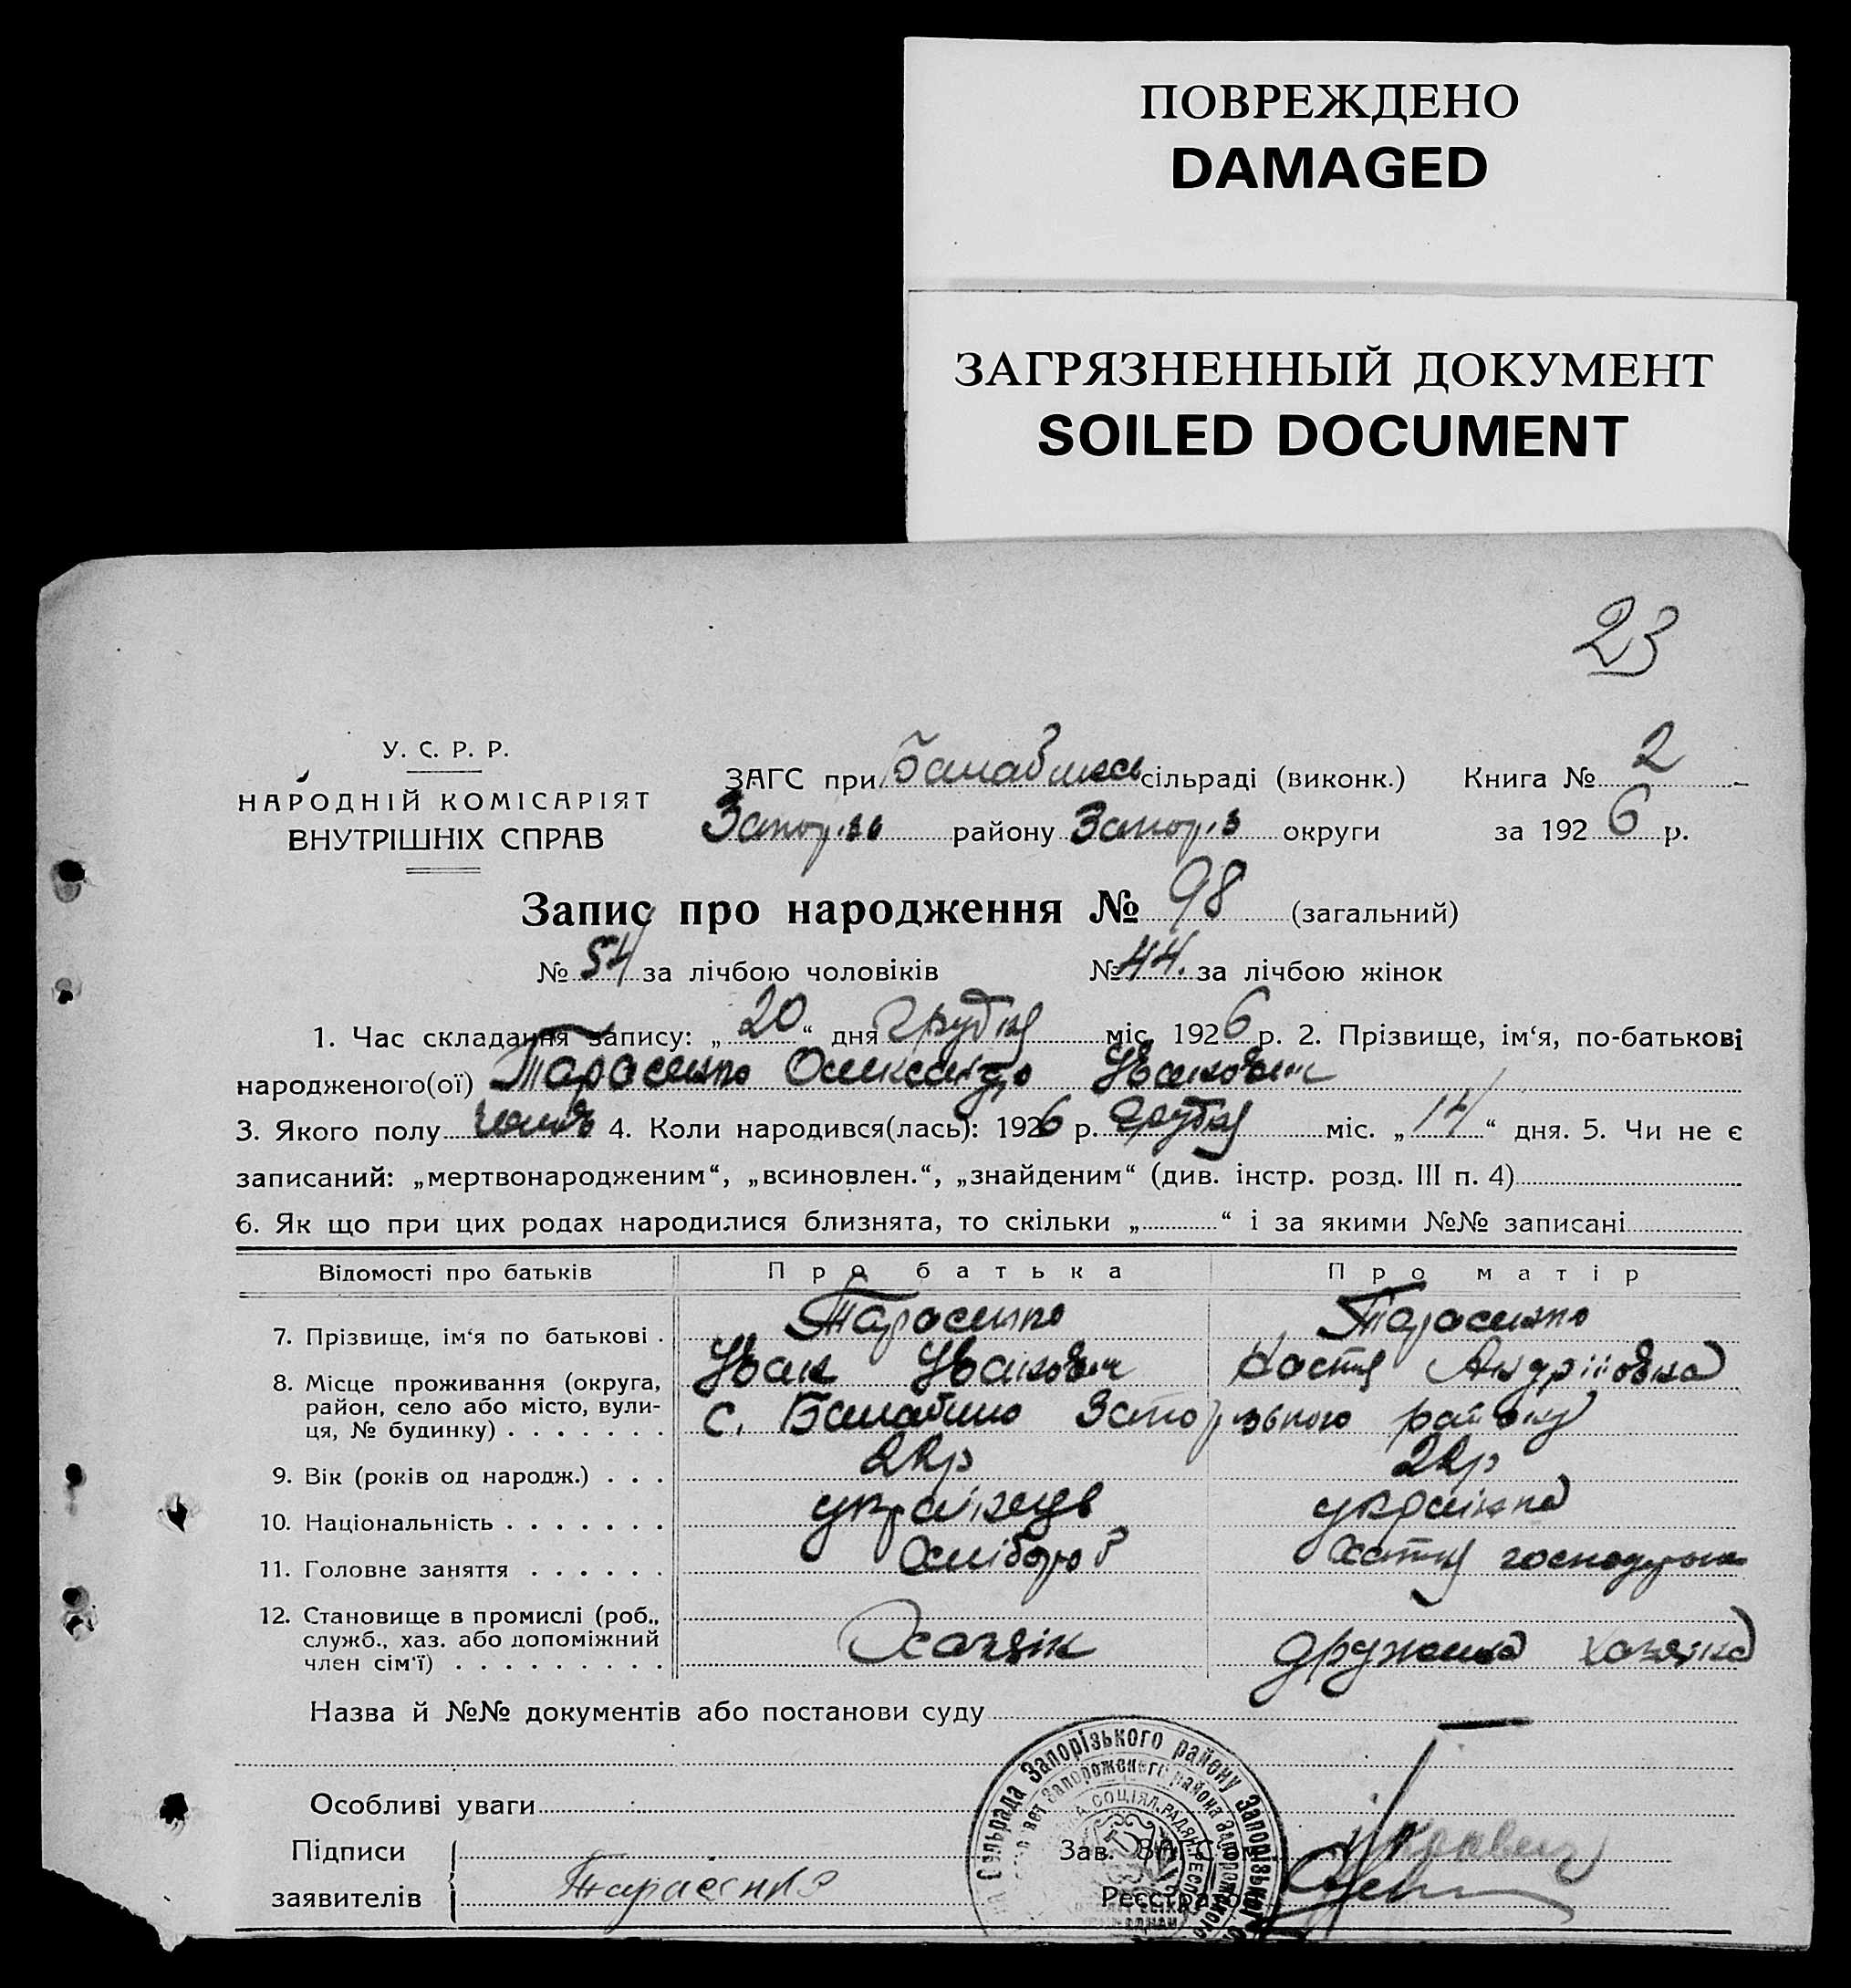 ПОВРЕЖДЕНО
DAMAGED
ЗАГРЯЗНЕННЫЙ ДОКУМЕНТ
SOILED DOCUMENT
23
У. С. Р. Р.
НАРОДНІЙ КОМІСАРІЯТ
ВНУТРІШНІХ СПРАВ
ЗАГС при сільраді (виконк.) Книга № 2
району округи за 1926 р.
Запис про народження № 98 (загальний)
№ 54 за лічбою чоловіків № 44. за лічбою жінок
1. Час складання запису: „20“ дня грудня міс. 1926 р. 2. Прізвище, ім‘я, по-батькові
народженого(ої) Тарасенко Олександр Іванович
3. Якого полу 4. Коли народився(лась): 1926 р. грудня міс. „14“ дня. 5. Чи не є
записаний: „мертвонародженим“, „всиновлен.“, „знайденим“ (див. інстр. розд. III п. 4)
6. Як що при цих родах народилися близнята, то скільки „ “ і за якими №№ записані
Відомості про батьків Про батька Про матір
Тарасенко Тарасенко
7. Прізвище, ім‘я по батькові . Іван Іванович Настя Андріївна
8. Місце проживання (округа, район, село або місто, вули-
ця, № будинку) . . . . . . . с. Балабино Запорізького району
9. Вік (років од народж.) . . . 22р 22р
10. Національність . . . . . . . українець українка
11. Головне заняття . . . . . . Хлібороб Хатня господарка
12. Становище в промислі (роб.,
служб., хаз. або допоміжний
член сім‘ї) . . . . . . . . . Хазяїн дружина хазяїна
Назва й №№ документів або постанови суду
Особливі уваги
Підписи
заявителів Тарасенко
Зав. ЗАГС‘ом
Реєстратор
Сільрада Запорізького району Запорізької
Запорожского района Запорожского
СОЦІЯЛ. РАДЯН. РЕСП